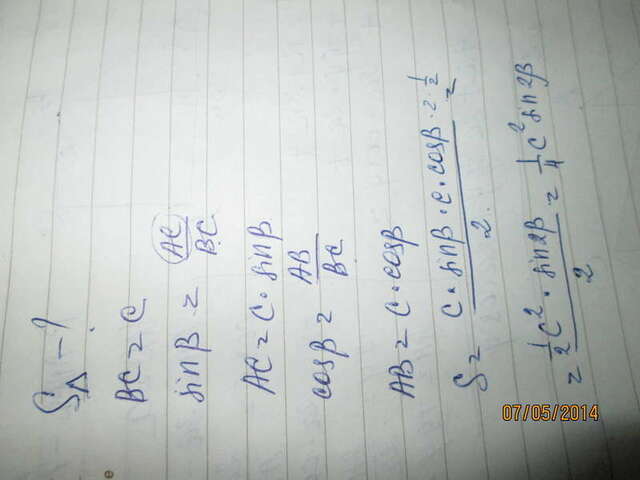 S△ - ?
BC = C
sin β = AC/BC
AC = C · sin β
cos β = AB/BC
AB = C · cos β
S = (C · sin β · c · cos β · 2 · 1/2)/2 =
= (1/2 C² · sin 2β)/2 = 1/4 C² sin 2β
07/05/2014